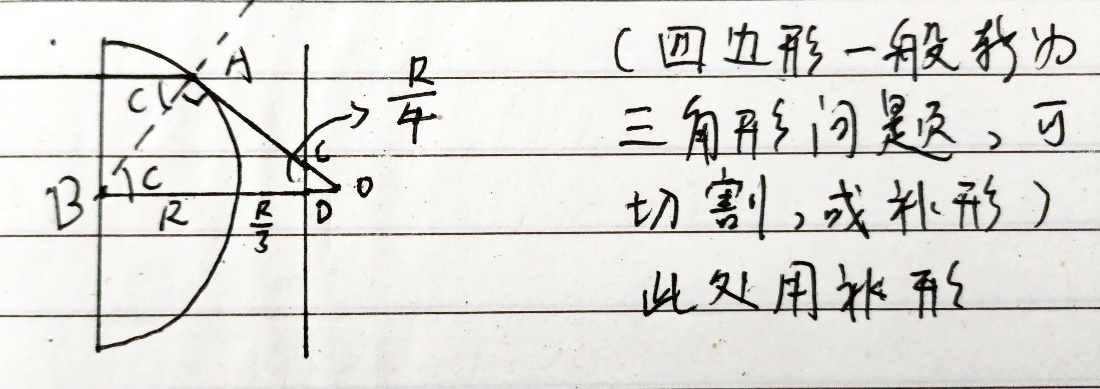 (四边形一般转为
三角形问题,可
切割,或补形)
此处用补形
A
R/4
C
C
C
B
R
R/3
D
O